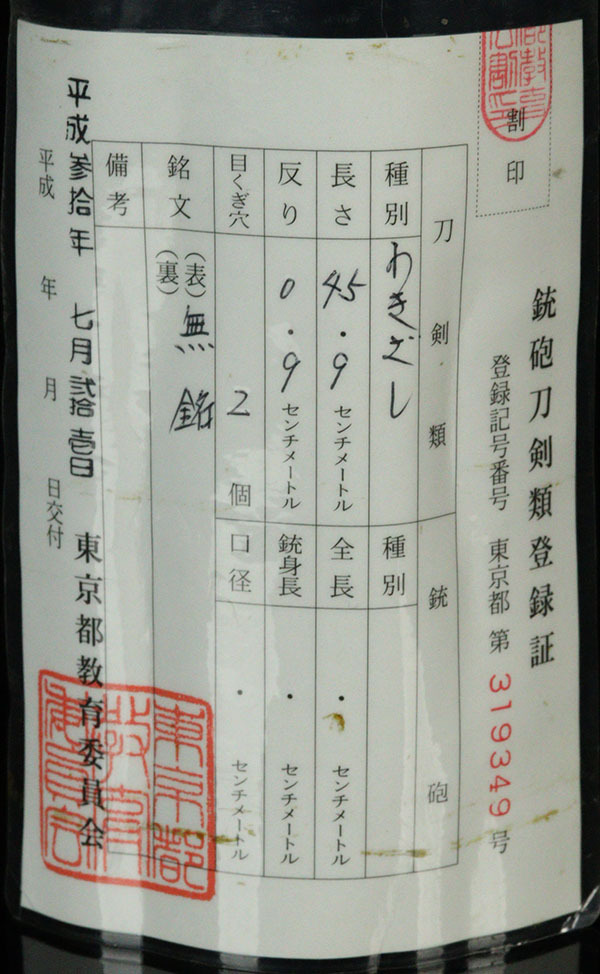 割印
銃砲刀剣類登録証
登録記号番号 東京都 第 319349 号
刀剣類
銃砲
種別 わきざし
種別
長さ 45.9 センチメートル
全長 ・ センチメートル
反り 0.9 センチメートル
銃身長 ・ センチメートル
目くぎ穴 2 個
口径 ・ センチメートル
銘文 (表) 無銘
(裏)
備考
平成参拾年七月弐拾壱日
平成 年 月 日交付
東京都教育委員会
東京都教育委員会